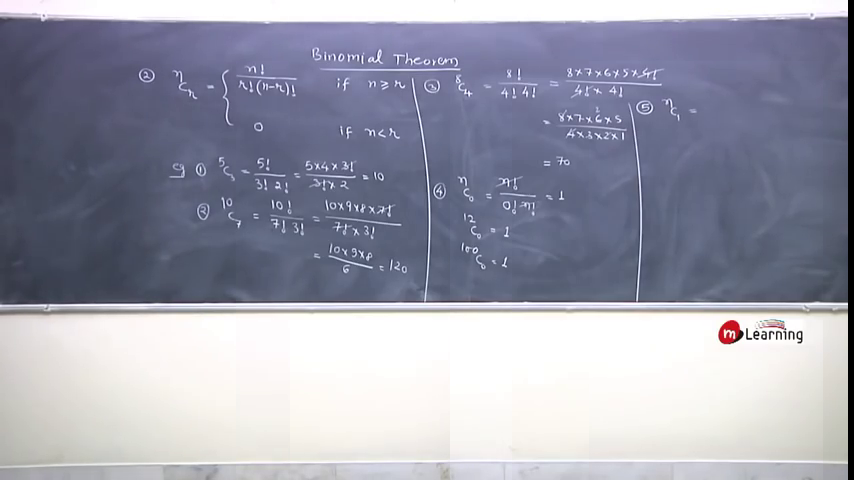 Binomial Theorem
② ⁿCᵣ = { n! / r!(n-r)! if n ≥ r
0 if n < r
eg ① ⁵C₃ = 5! / 3! 2! = 5×4×3! / 3!×2 = 10
② ¹⁰C₇ = 10! / 7! 3! = 10×9×8×7! / 7!×3!
= 10×9×8 / 6 = 120
③ ⁸C₄ = 8! / 4! 4! = 8×7×6×5×4! / 4!×4!
= 8×7×6×5 / 4×3×2×1
= 70
④ ⁿC₀ = n! / 0! n! = 1
¹²C₀ = 1
¹⁰⁰C₀ = 1
⑤ ⁿC₁ =
m Learning